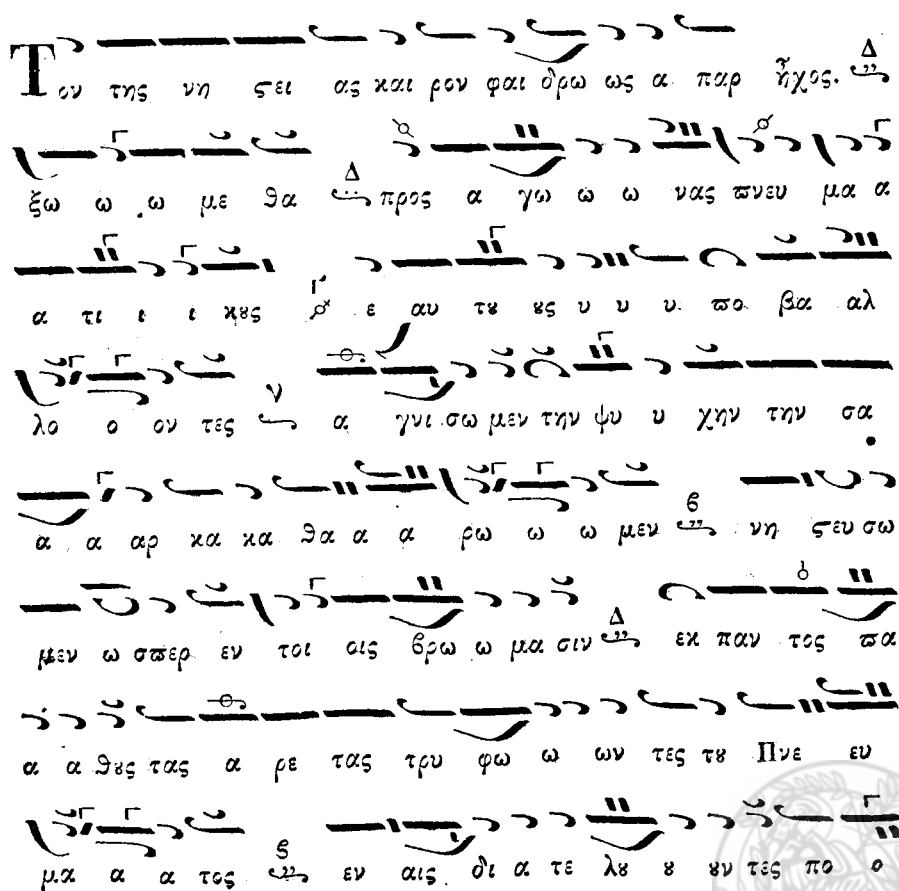 Τον της νη ϛει ας και ρον φαι δρω ως α παρ ἦχος. Δ
ξω ω ω με θα Δ προς α γω ω ω νας πνευ μα α
α τι ι ι κȣς Γ ε αυ τȣ ȣς υ υ υ πο βα αλ
λο ο ον τες ν α γνι σω μεν την ψυ υ χην την σα
α α αρ κα κα θα α α ρω ω ω μεν ϐ νη ϛευ σω
μεν ω σπερ εν τοι οις βρω ω μα σιν Δ εκ παν τος πα
α α θȣς τας α ρε τας τρυ φω ω ων τες τȣ Πνε ευ
μα α α τος ϐ εν αις δι α τε λȣ ȣ ȣν τες πο ο